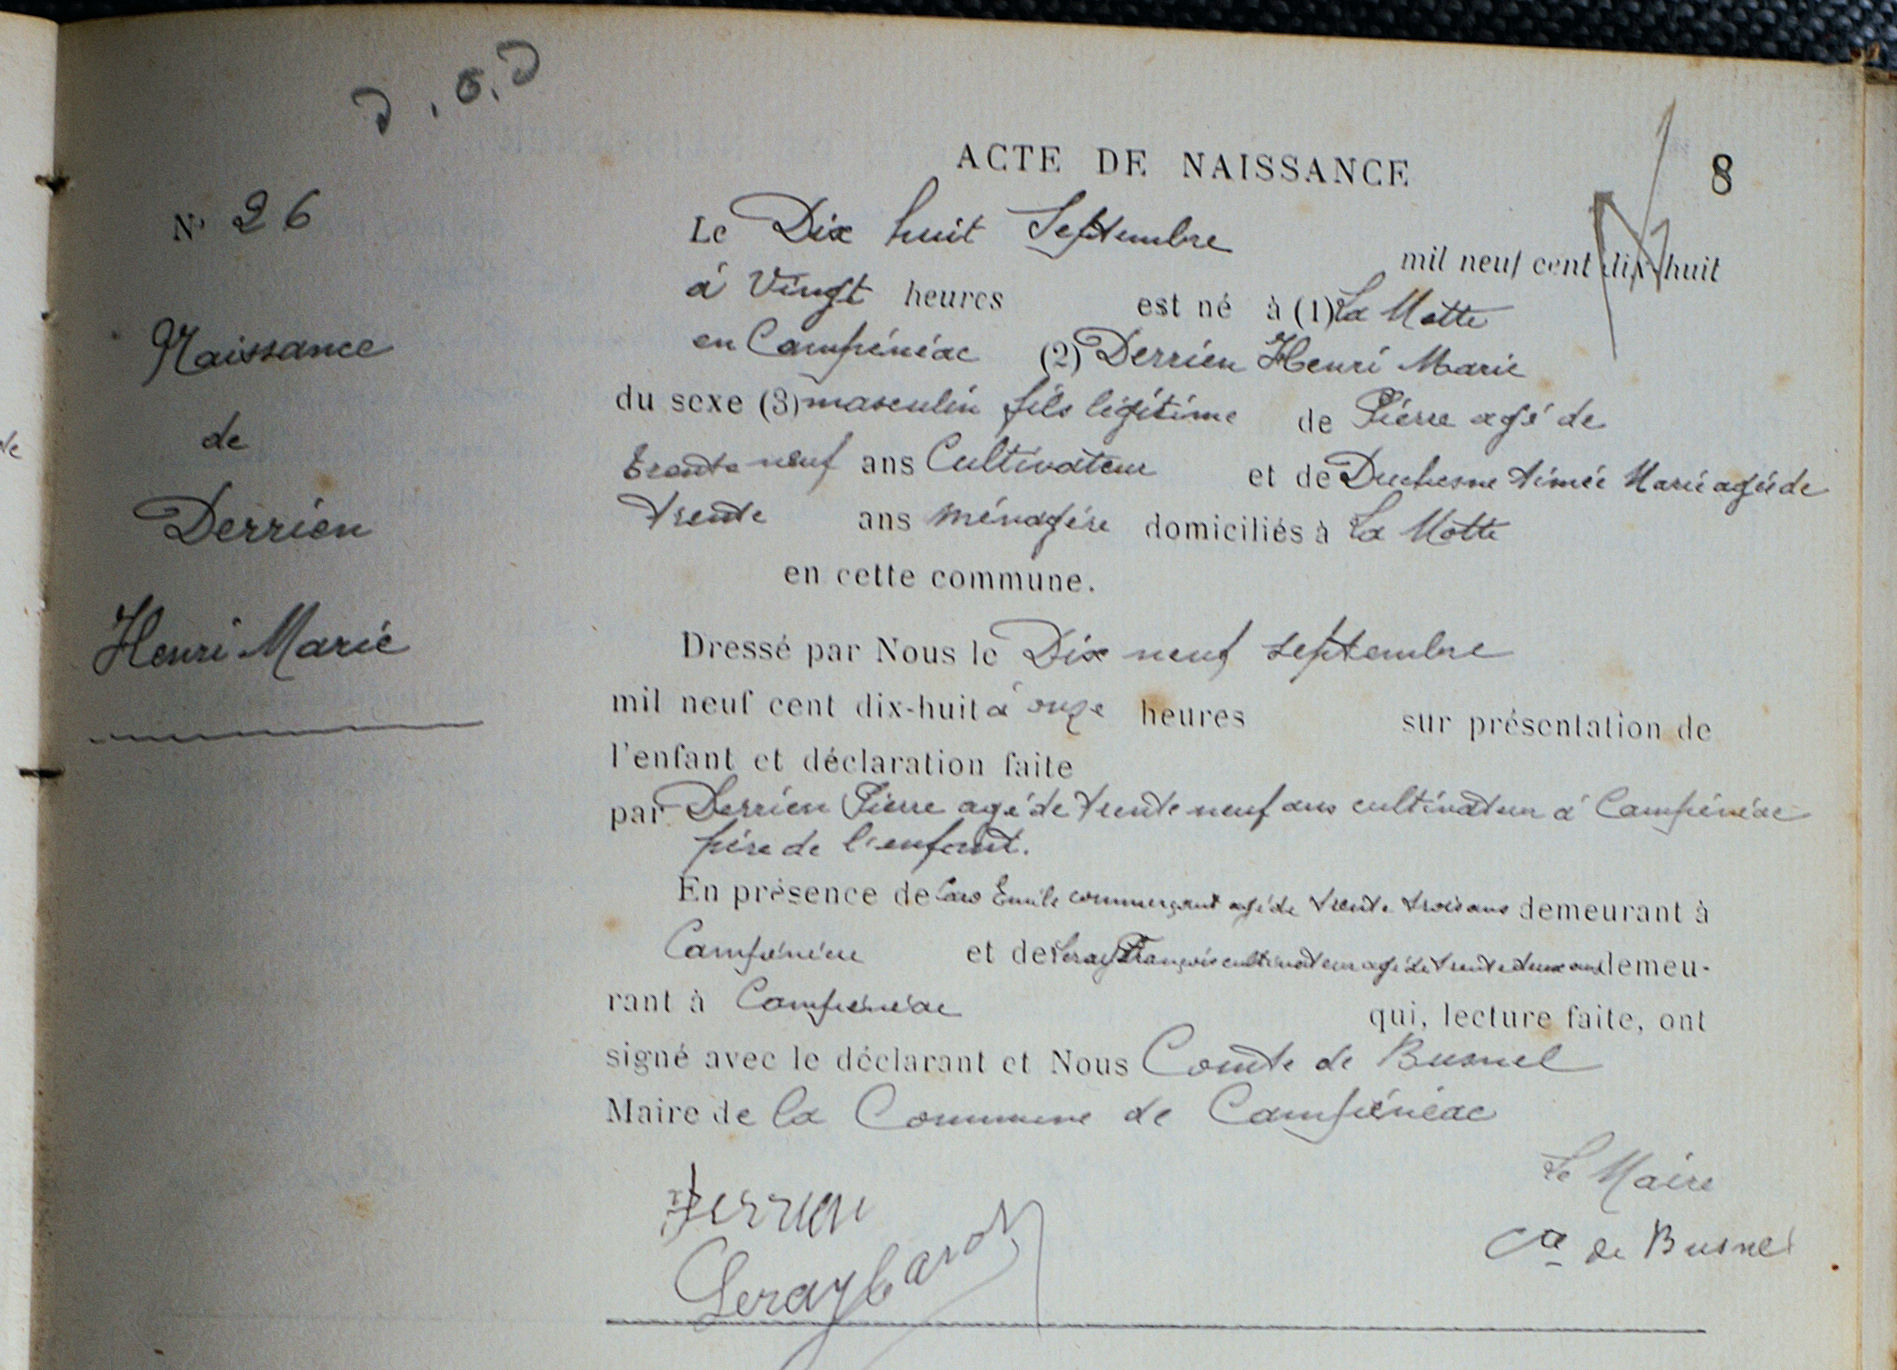 D.O.D
ACTE DE NAISSANCE
8
N° 26
Naissance
de
Derrien
Henri Marie
Le Dix huit Septembre mil neuf cent dix-huit
à Vingt heures est né à (1) La Motte
en Campénéac (2) Derrien Henri Marie
du sexe (3) masculin fils légitime de Pierre agé de
trente neuf ans Cultivateur et de Duchesne Aimée Marie agée de
trente ans ménagère domiciliés à La Motte
en cette commune.
Dressé par Nous le Dix neuf septembre
mil neuf cent dix-huit à onze heures sur présentation de
l'enfant et déclaration faite
par Derrien Pierre agé de trente neuf ans cultivateur à Campénéac
père de l'enfant.
En présence de Caro Emile commerçant agé de trente trois ans demeurant à
Campénéac et de Leray François cultivateur agé de trente deux ans demeu-
rant à Campénéac qui, lecture faite, ont
signé avec le déclarant et Nous Comte de Busnel
Maire de la Commune de Campénéac
Le Maire
Derrien
Cte de Busnel
Leray Caro